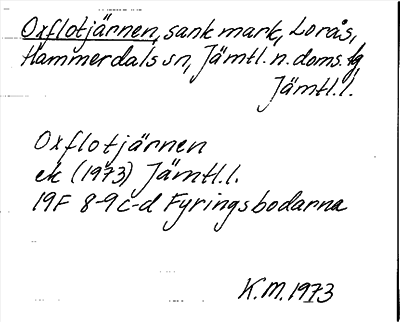 Oxflotjärnen, sank mark, Lorås,
Hammerdals sn, Jämtl. n. doms. lg
Jämtl. l.
Oxflotjärnen
ek (1973) Jämtl. l.
19F 8-9c-d Fyringsbodarna
K.M. 1973